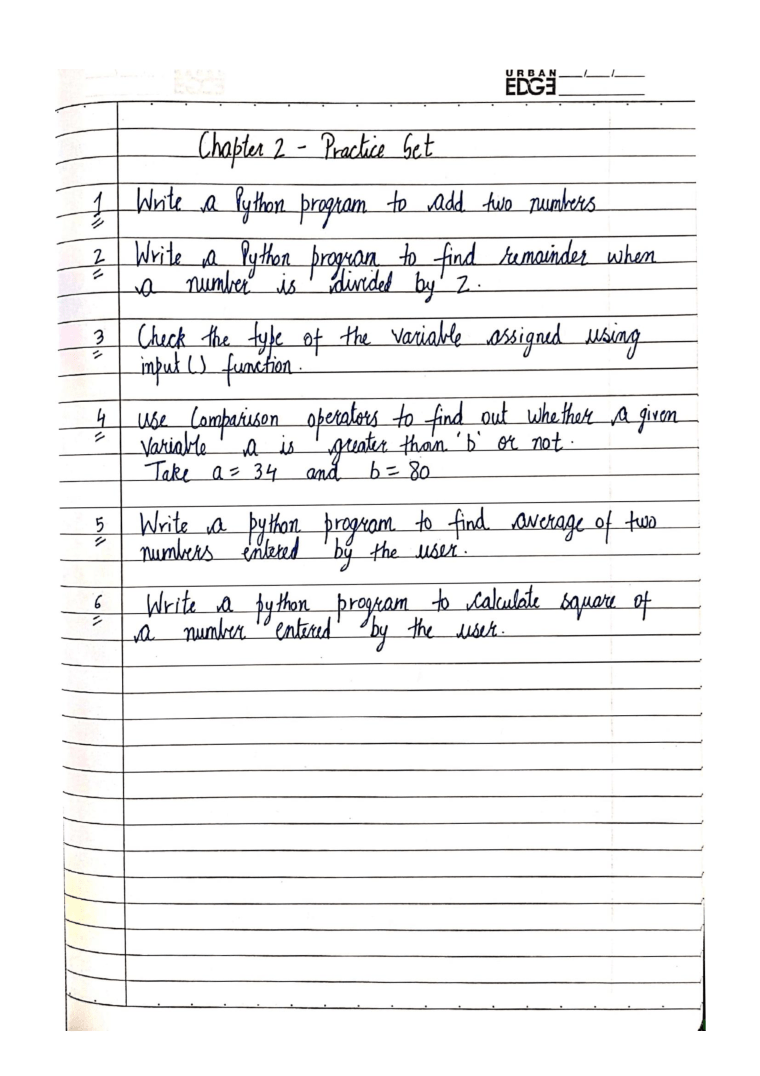 URBAN
EDGE
Chapter 2 - Practice Set
1 Write a Python program to add two numbers
2 Write a Python program to find remainder when
a number is divided by 2.
3 Check the type of the variable assigned using
input () function.
4 Use Comparison operators to find out whether a given
Variable a is greater than 'b' or not.
Take a = 34 and b = 80
5 Write a python program to find average of two
numbers entered by the user.
6 Write a python program to calculate square of
a number entered by the user.